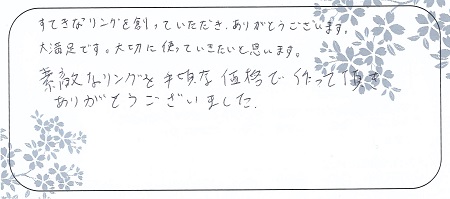 すてきなリングを創っていただき、ありがとうございます。
大満足です。大切に使っていきたいと思います。
素敵なリングを手頃な価格で作って頂き
ありがとうございました.